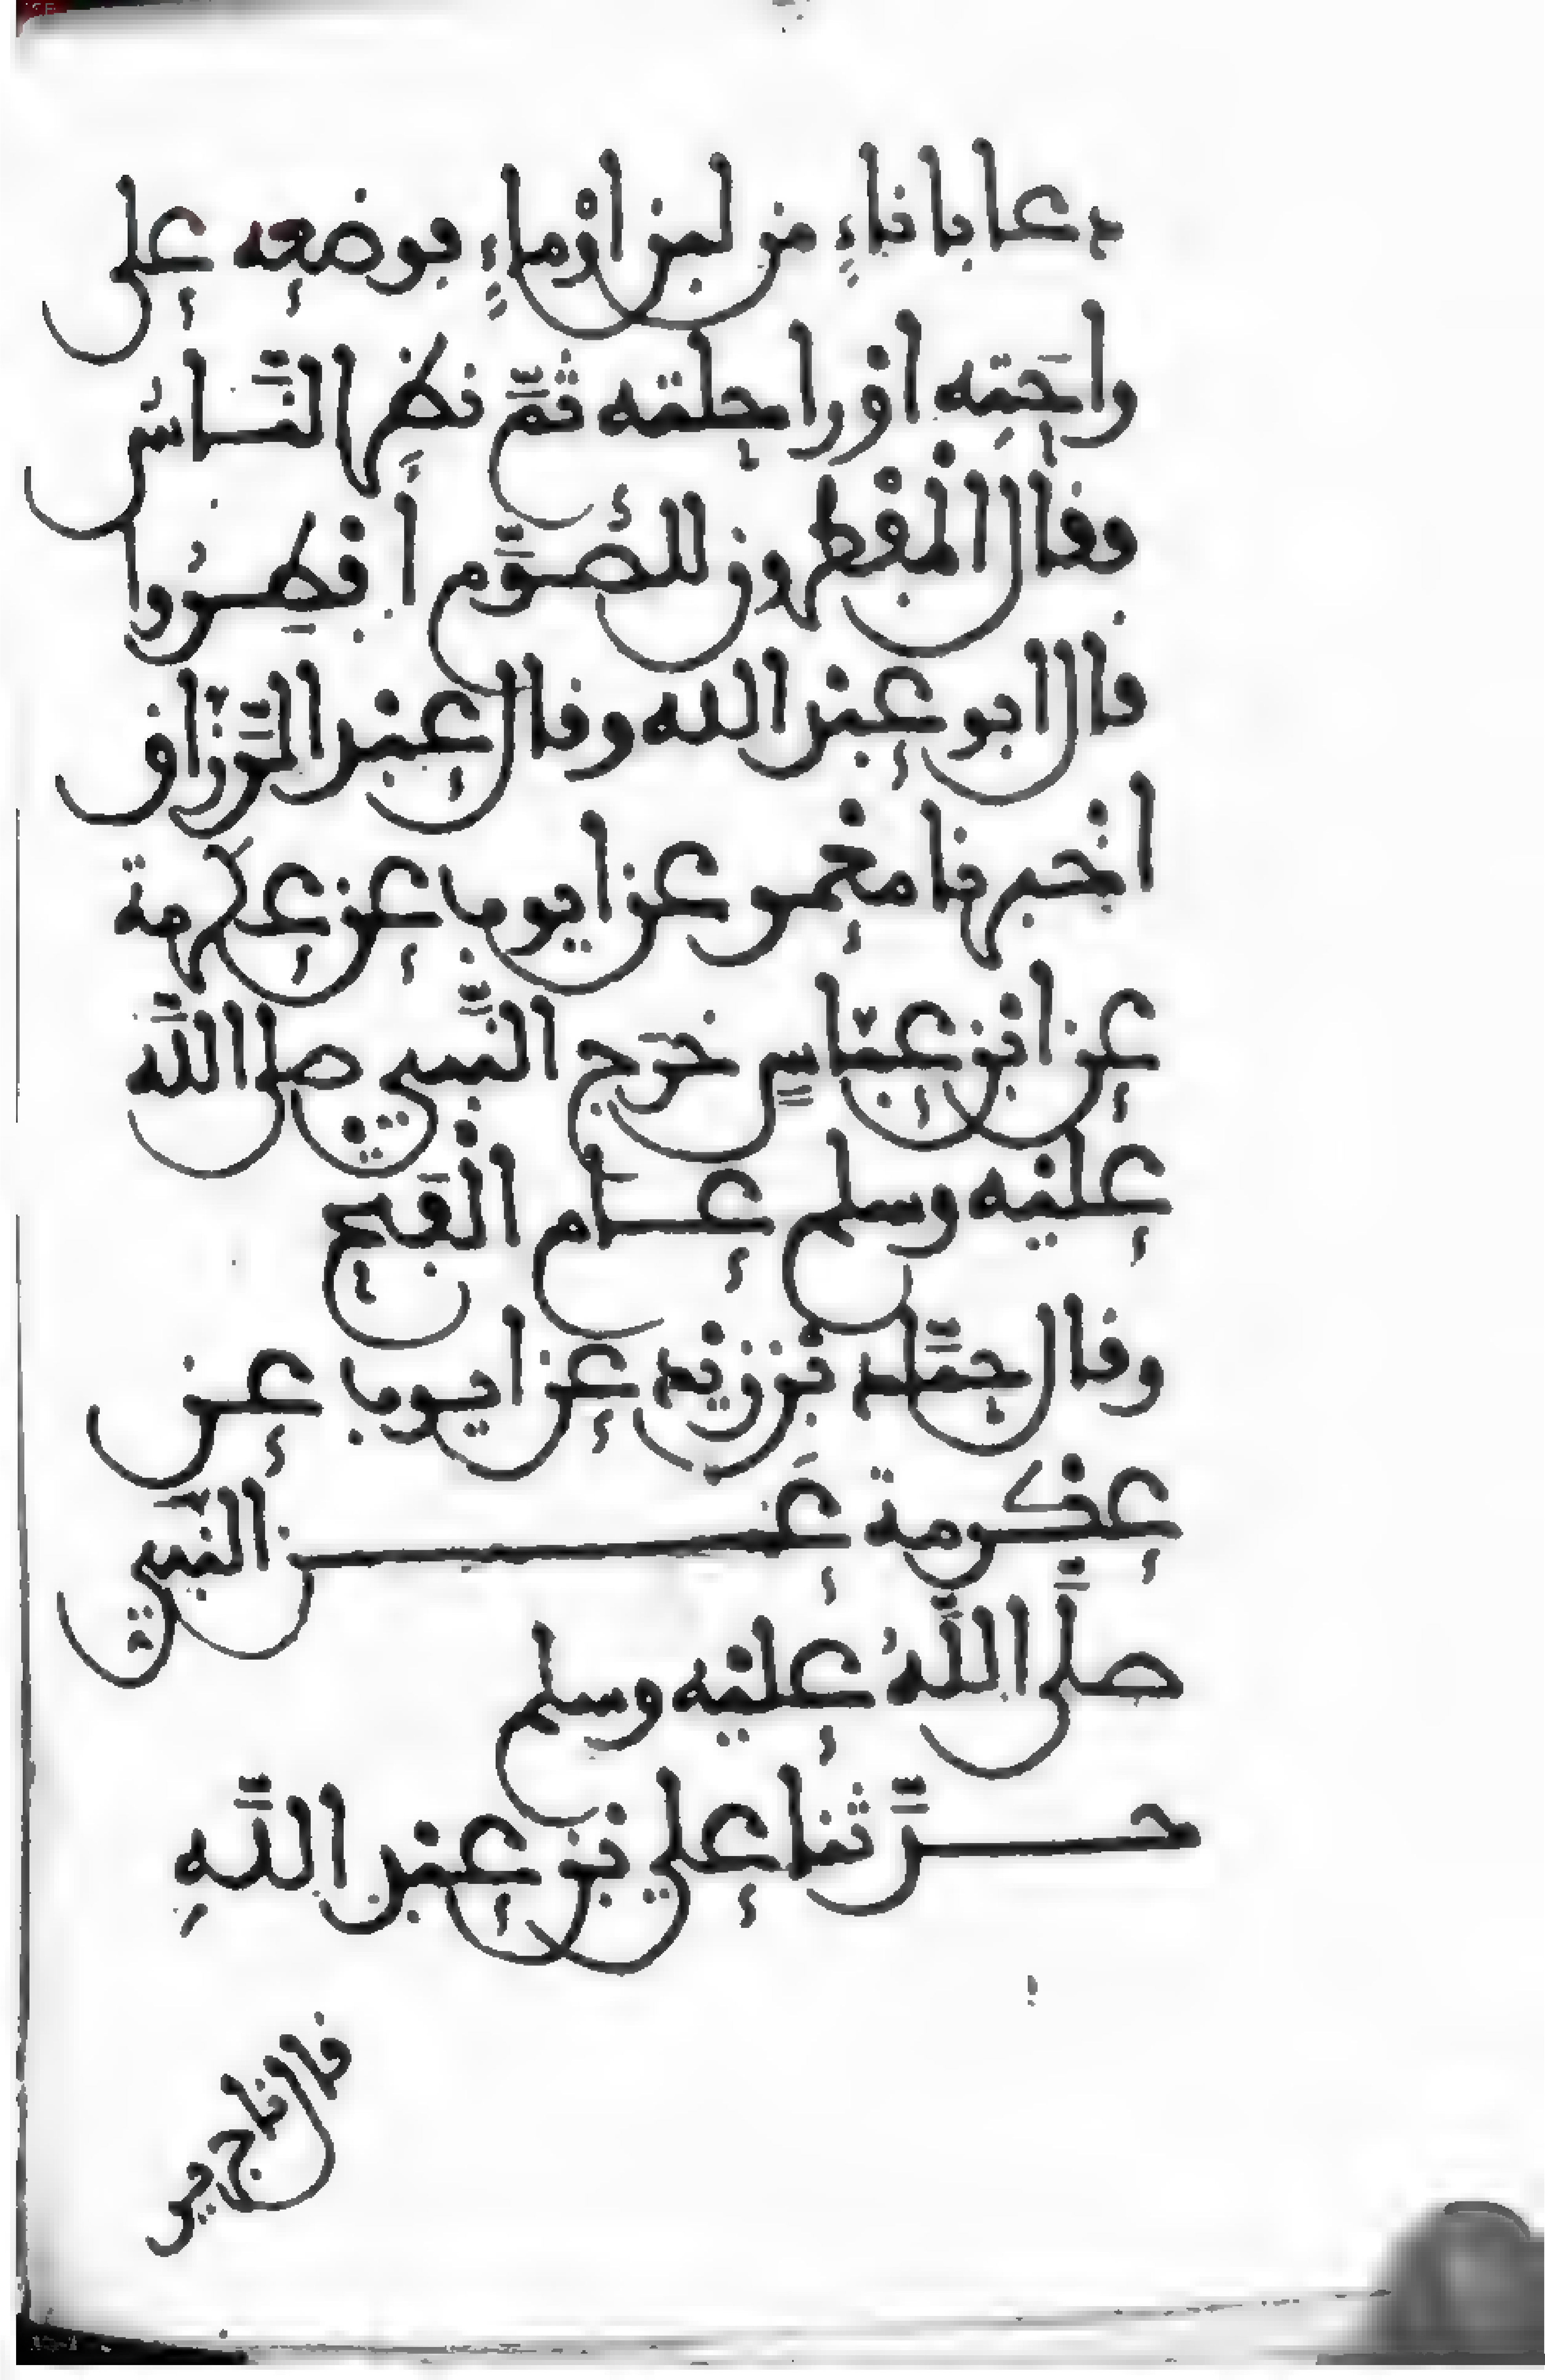 دعا باناءٍ من لبن اوْ ماءٍ فوضعه على
راحَتِه اوْ راحلته ثمَّ نظر النَّاسُ
فقال الْمفْطرون للصُّوَّم أَفْطِرُوا
قال ابو عبْد الله وقال عبْد الرَّزَّاق
اخْبرنا معْمر عن ايوب عن عكرمة
عن ابْن عبَّاسٍ خرَج النَّبي صلى اللَّه
عليْه وسلم عَام الْفَتح
وقال حمَّاد بْن زيْد عن ايوب عن
عكْرمة عَن النَّبيّ
صلَّى اللَّهُ عليْه وسلم
حدَّثنا علي بْن عبْد اللَّهِ
قال نا جرير